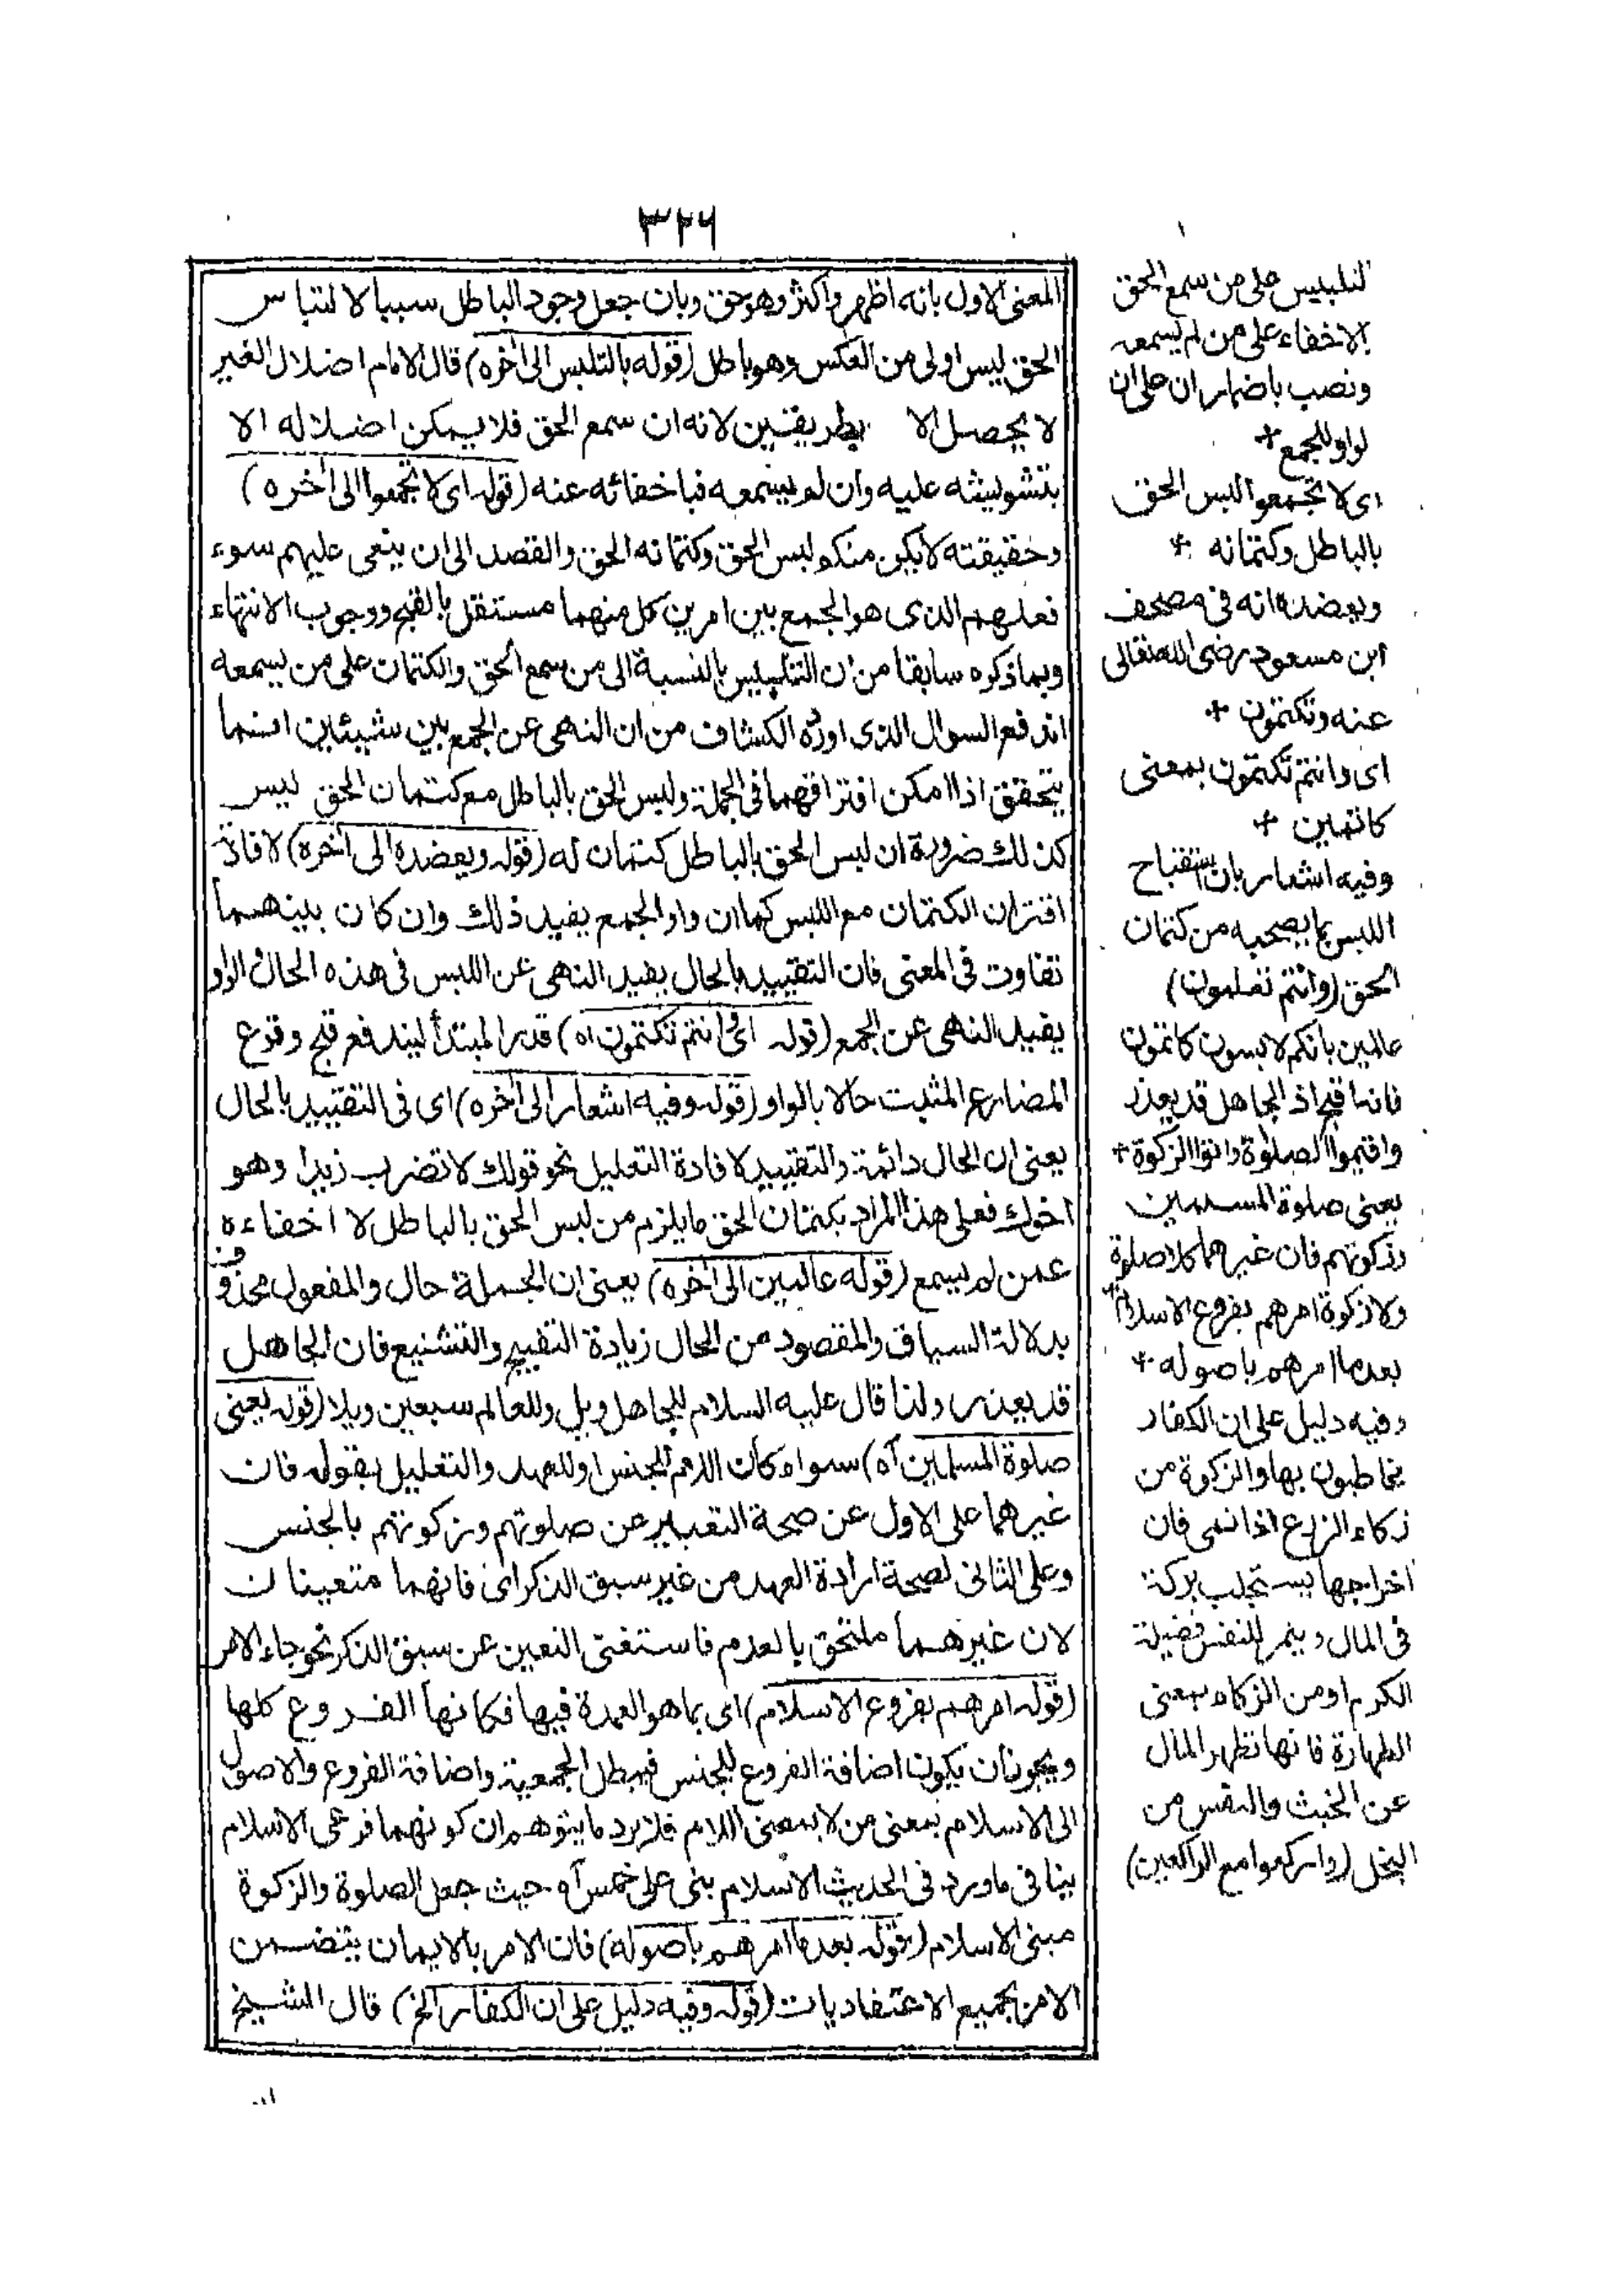 ٣٢٦
المعنى الاول بانه اظهر واكثر وهو حق وبان جعل وجود الباطل سببا لالتباس
الحق ليس اولى من العكس وهو باطل (قوله بالتلبس الى آخره) قال الامام اضلال الغير
لا يحصل الا بطريقين لانه ان سمع الحق فلا يمكن اضلاله الا
بتشويشه عليه وان لم يسمعه فباخفائه عنه (قوله اى لا تجمعوا الى آخره)
وحقيقته لا يكن منكم لبس الحق وكتمانه الحق والقصد الى ان ينعى عليهم سوء
فعلهم الذى هو الجمع بين امرين كل منهما مستقل بالقبح ووجوب الانتهاء
وبما ذكره سابقا من ان التلبيس بالنسبة الى من سمع الحق والكتمان على من يسمعه
اندفع السوال الذى اورده الكشاف من ان النهى عن الجمع بين شيئين انما
يتحقق اذا امكن افتراقهما فى الجملة ولبس الحق بالباطل مع كتمان الحق ليس
كذلك ضرورة ان لبس الحق بالباطل كتمان له (قوله ويعضده الى آخره) لافادة
اقتران الكتمان مع اللبس كما ان واو الجمع يفيد ذلك وان كان بينهما
تفاوت فى المعنى فان التقييد بالحال يفيد النهى عن اللبس فى هذه الحال والواو
يفيد النهى عن الجمع (قوله اى وانتم تكتمون اه) قدر المبتدأ ليندفع قبح وقوع
المضارع المثبت حالا بالواو (قوله وفيه اشعار الى آخره) اى فى التقييد بالحال
يعنى ان الحال دائمة والتقييد لافادة التعليل نحو قولك لا تضرب زيدا وهو
اخوك فعلى هذا المراد بكتمان الحق ما يلزم من لبس الحق بالباطل لا اخفاءه
عمن لم يسمع (قوله عالمين الى آخره) يعنى ان الجملة حال والمفعول محذوف
بدلالة السياق والمقصود من الحال زيادة التقبيح والتشنيع فان الجاهل
قد يعذر ولذا قال عليه السلام للجاهل ويل وللعالم سبعين ويلا (قوله يعنى
صلوة المسلمين آه) سواء كان اللام للجنس او للعهد والتعليل بقوله فان
غيرهما على الاول عن صحة التعبير عن صلوتهم وزكوتهم بالجنس
وعلى الثانى لصحة ارادة العهد من غير سبق الذكر اى فانهما متعينان
لان غيرهما ملتحق بالعدم فاستغنى التعين عن سبق الذكر نحو جاء الامر
(قوله امرهم بفروع الاسلام) اى بما هو العمدة فيها فكانها الفروع كلها
ويجوز أن يكون اضافة الفروع للجنس فيبطل الجمعية واضافة الفروع والاصول
الى الاسلام بمعنى من لا بمعنى اللام فلا يرد ما يتوهم ان كونهما فرعى الاسلام
ينافى ما ورد فى الحديث الاسلام بنى على خمس آه حيث جعل الصلوة والزكوة
مبنى الاسلام (قوله بعد ما امرهم باصوله) فان الامر بالايمان يتضمن
الامر بجميع الاعتقاديات (قوله وفيه دليل على ان الكفار الخ) قال الشيخ
لتلبيس على من سمع الحق
بالاخفاء على من لم يسمعه
ونصب باضمار ان على ان
لواو للجمع +
اى لا تجمعوا اللبس الحق
بالباطل وكتمانه +
ويعضده انه فى مصحف
ابن مسعود رضى الله تعالى
عنه وتكتمون +
اى وانتم تكتمون بمعنى
كاتمين +
وفيه اشعار بان استقباح
اللبس بما يصحبه من كتمان
الحق (وانتم تعلمون)
عالمين بانكم لابسون كاتمون
فانه اقبح اذ الجاهل قد يعذر
واقيموا الصلوة واتوا الزكوة +
يعنى صلوة المسلمين
وزكوتهم فان غيرهما كلا صلوة
ولا زكوة امرهم بفروع الاسلام
بعد ما امرهم باصوله +
وفيه دليل على ان الكفار
يخاطبون بها والزكوة من
زكاء الزرع اذا نمى فان
اخراجها يستجلب بركة
فى المال ويثمر للنفس فضيلة
الكرم او من الزكاء بمعنى
الطهارة فانها تطهر المال
عن الخبث والنفس من
البخل (واركعوا مع الراكعين)